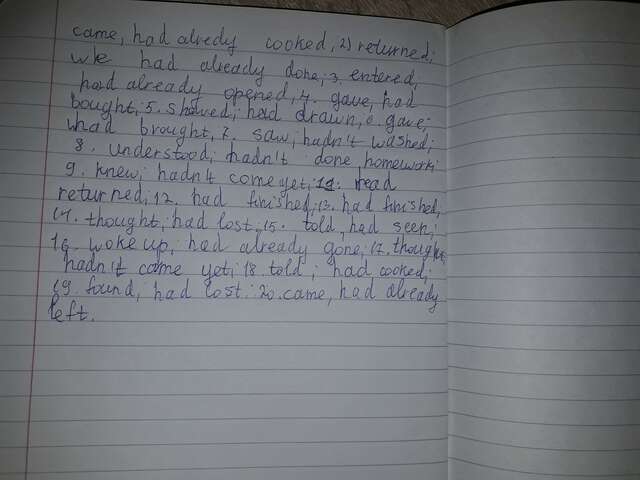 came, had alredy cooked, 2) returned;
had already done; 3. entered,
had already opened, 4. gave, had
bought; 5. showed; had drawn, 6. gave;
had brought, 7. saw; hadn't washed;
8. understood; hadn't done homework;
9. knew; hadn't come yet; read
returned; 12. had finished; 13. had finished,
14. thought; had lost; 15. told, had seen;
16. woke up, had already gone, 17. thought
hadn't came yet; 18. told; had cooked;
19. found, had lost; 20. came, had already
left.